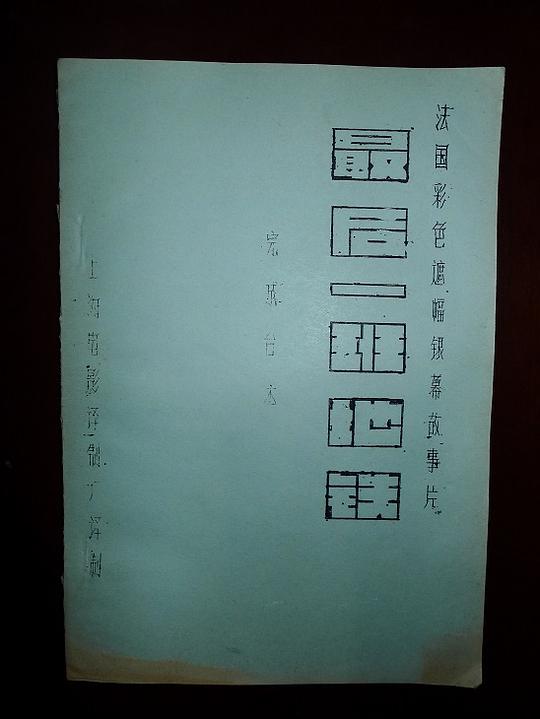 法国彩色遮幅银幕故事片
最后一班地铁
完成台本
上海电影译制厂译制